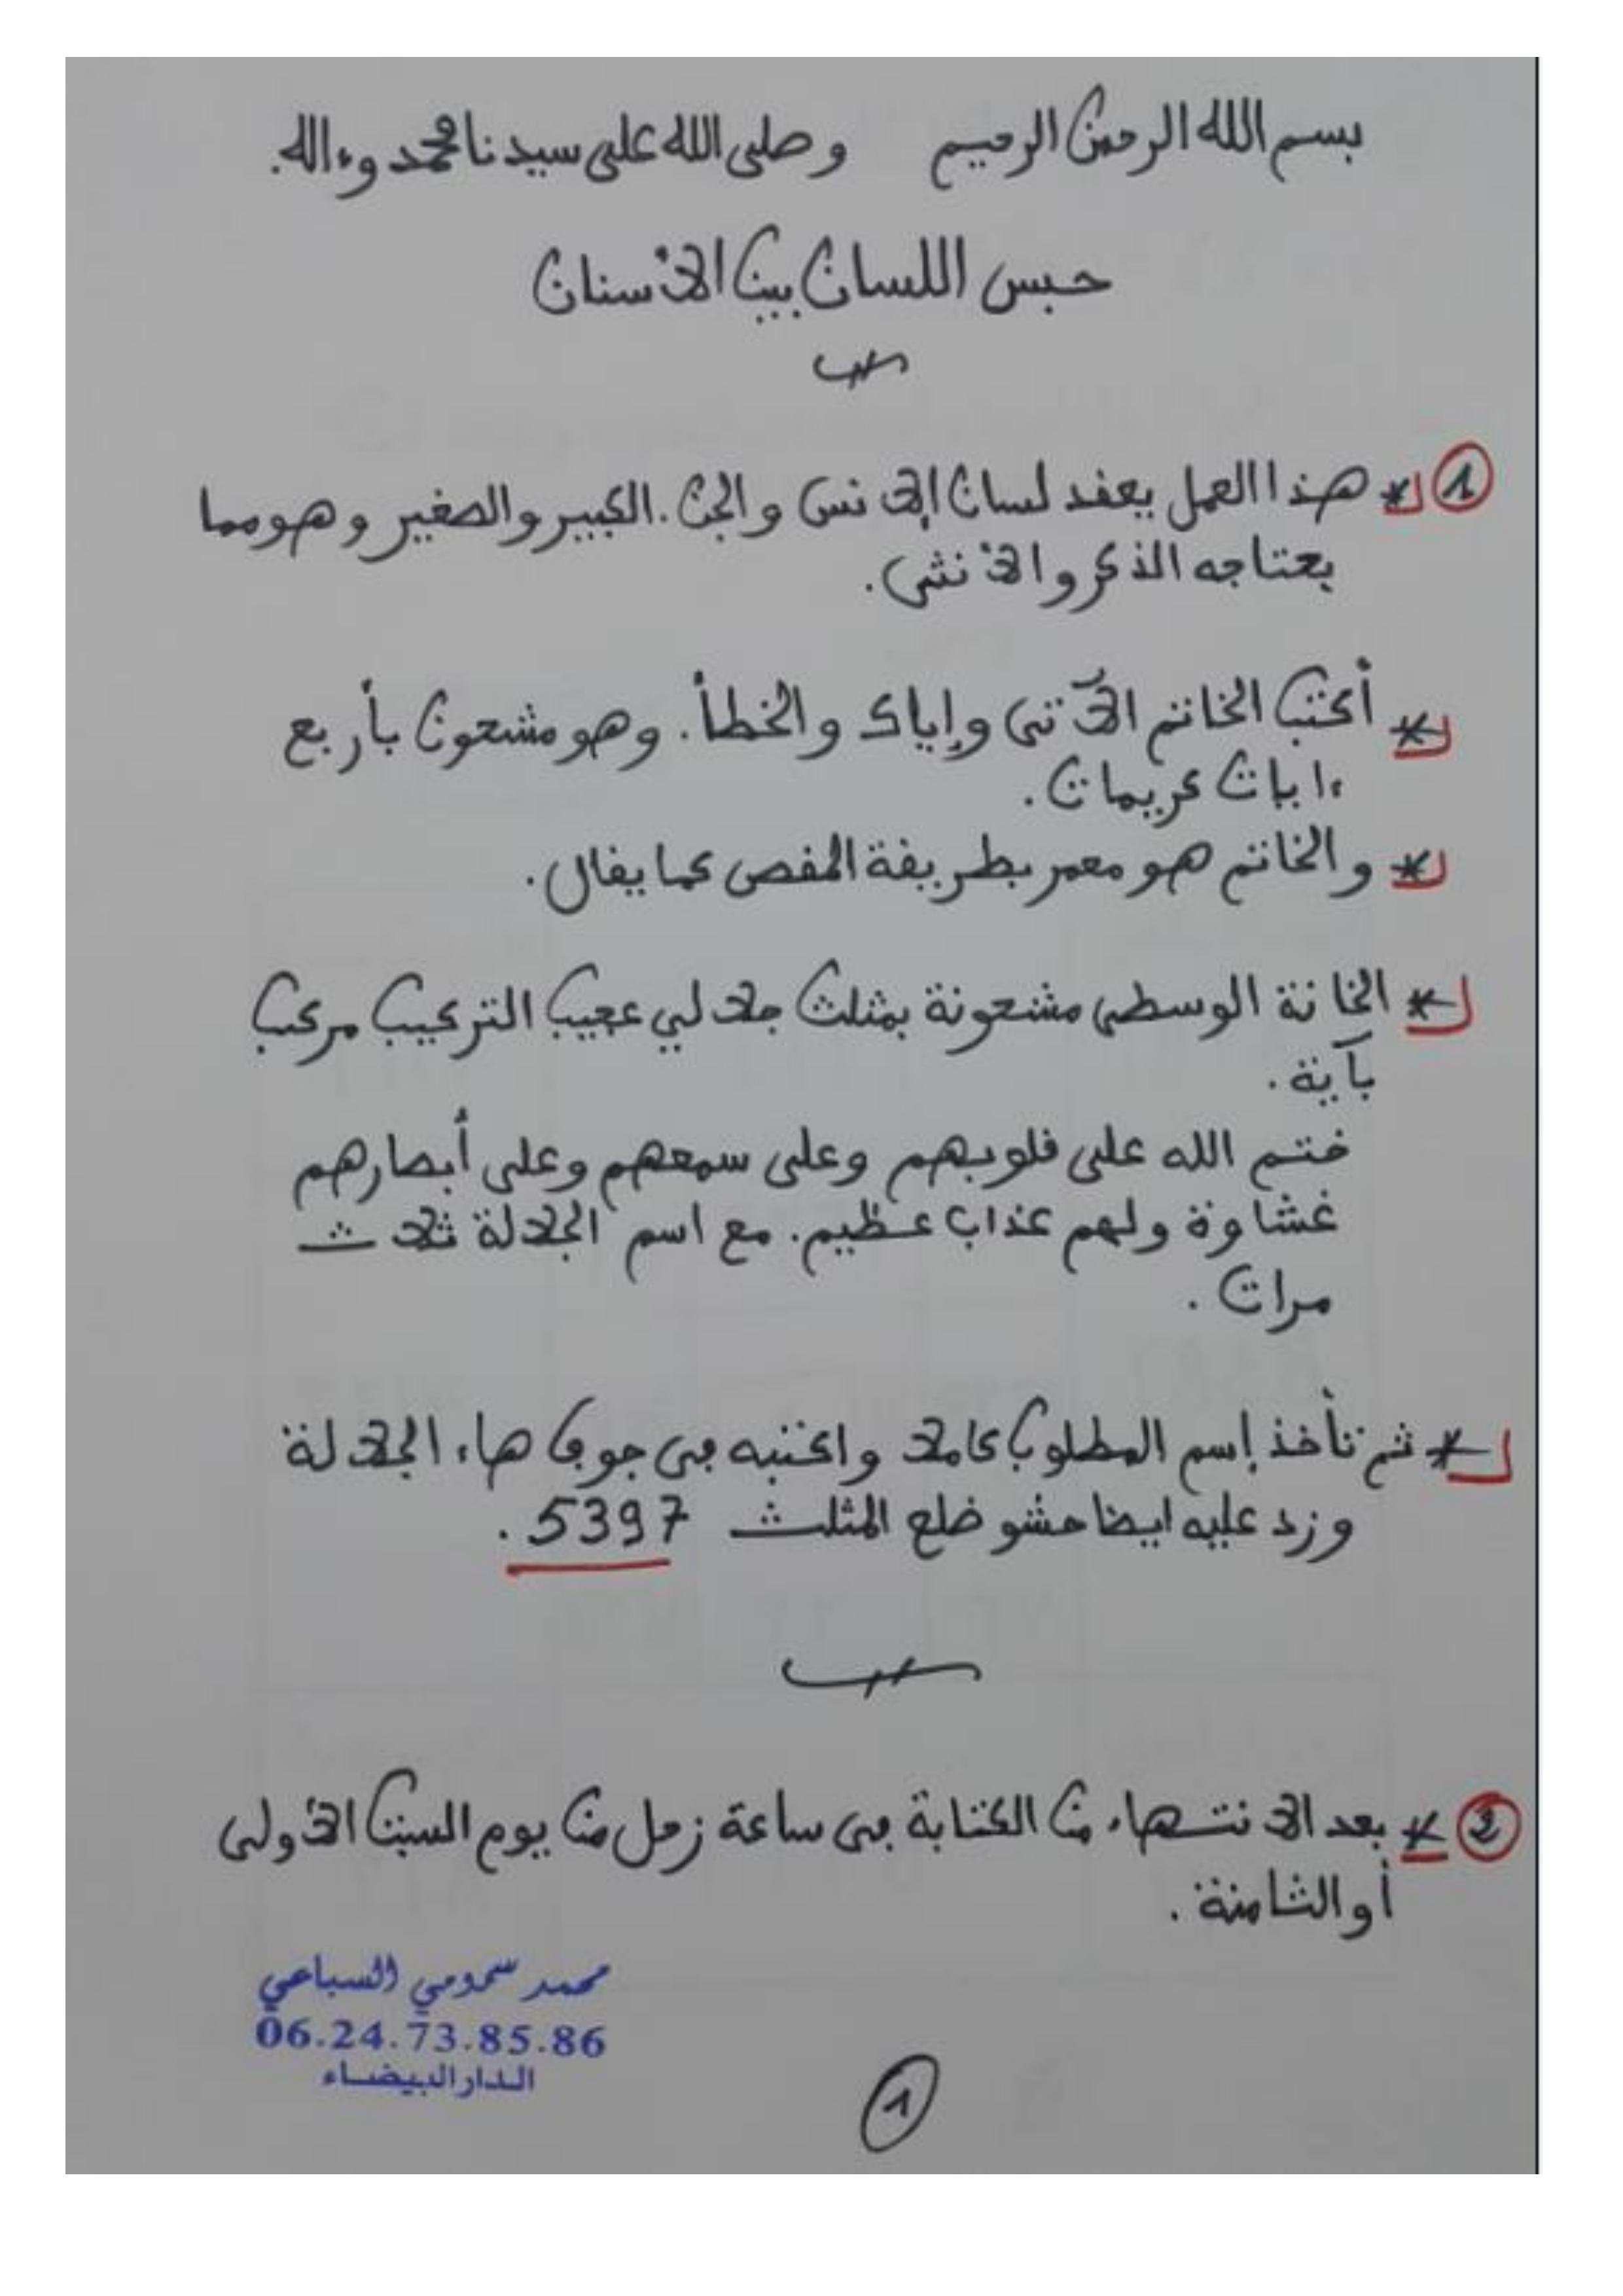 بسم الله الرحمن الرحيم وصلى الله على سيدنا محمد وءاله.
حبس اللسان بين الأسنان
1 * هذا العمل يعقد لسان الإنس والجن. الكبير والصغير وهو مما
يحتاجه الذكر والأنثى.
* أكتب الخاتم الآتي وإياك والخطأ. وهو مشحون بأربع
ءايات كريمات.
* والخاتم هو معمر بطريقة المقص كما يقال.
* الخانة الوسطى مشحونة بمثلث جلالي عجيب التركيب مركب
بآية.
ختم الله على قلوبهم وعلى سمعهم وعلى أبصارهم
غشاوة ولهم عذاب عظيم. مع اسم الجلالة ثلاث
مرات.
* ثم تأخذ إسم المطلوب كاملا واكتبه في جوف هاء الجلالة
وزد عليه ايضا حشو ضلع المثلث 5397.
2 * بعد الانتهاء من الكتابة في ساعة زحل من يوم السبت الأولى
أو الثامنة.
محمد سمومي السباعي
06.24.73.85.86
الدار البيضاء
1